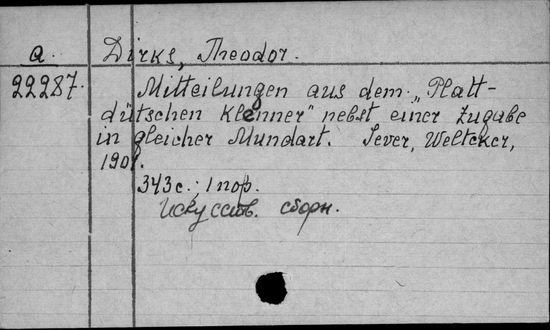 a. Dirks, Theodor.
22287. Mitteilungen aus dem „Platt-
dütschen Klenner" nebst einer Zugabe
in gleicher Mundart. Jever, Weltcker,
1901.
343 с.; 1 пор.
Искусств. сборн.